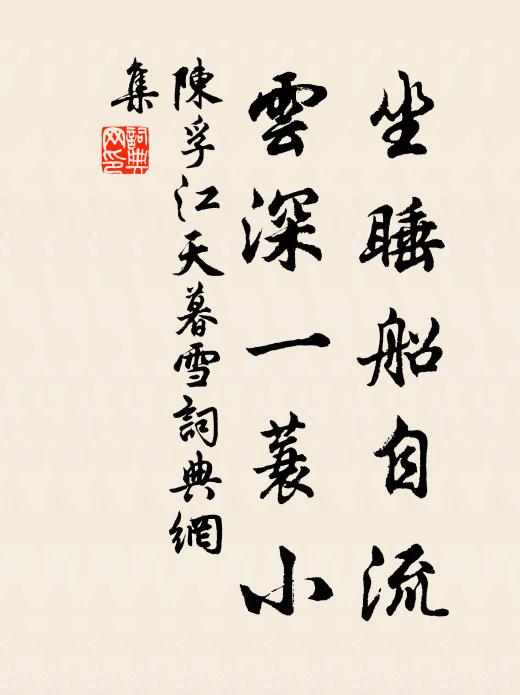 坐睡船自流
雲深一蓑小
陳孚江天暮雪詞典網
集
詞典網印